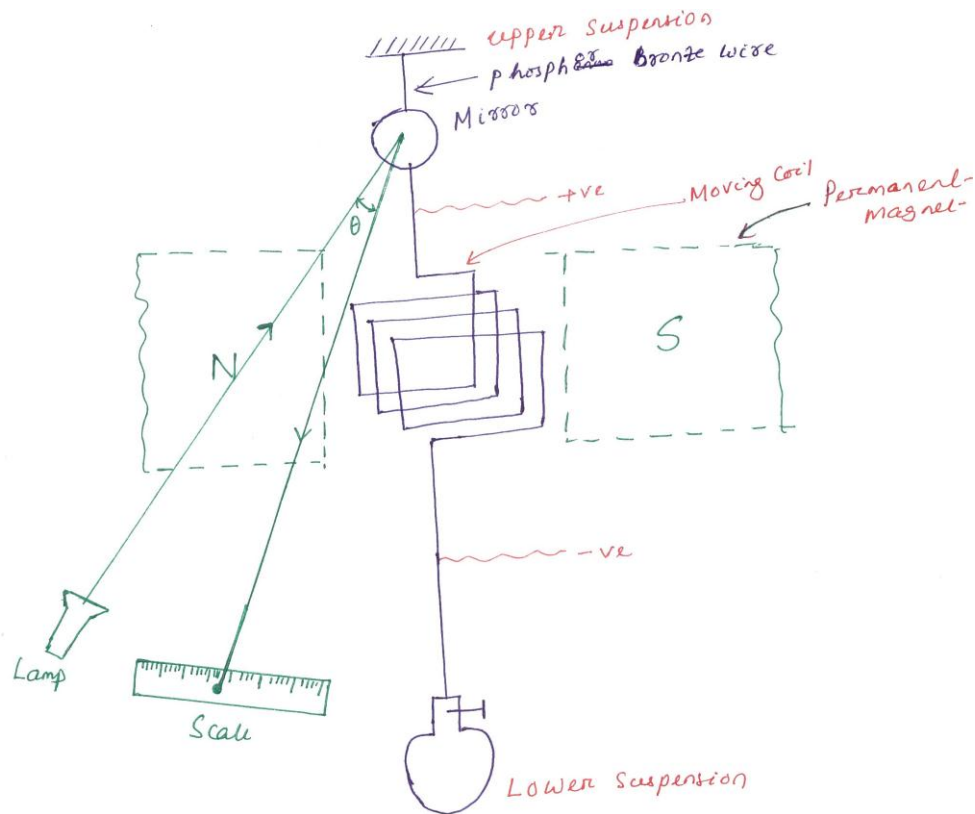 Upper Suspension
phospher Bronze wire
Mirror
+ve
Moving Coil
Permanent-
Magnet-
θ
N
S
-ve
Lamp
Scale
Lower Suspension